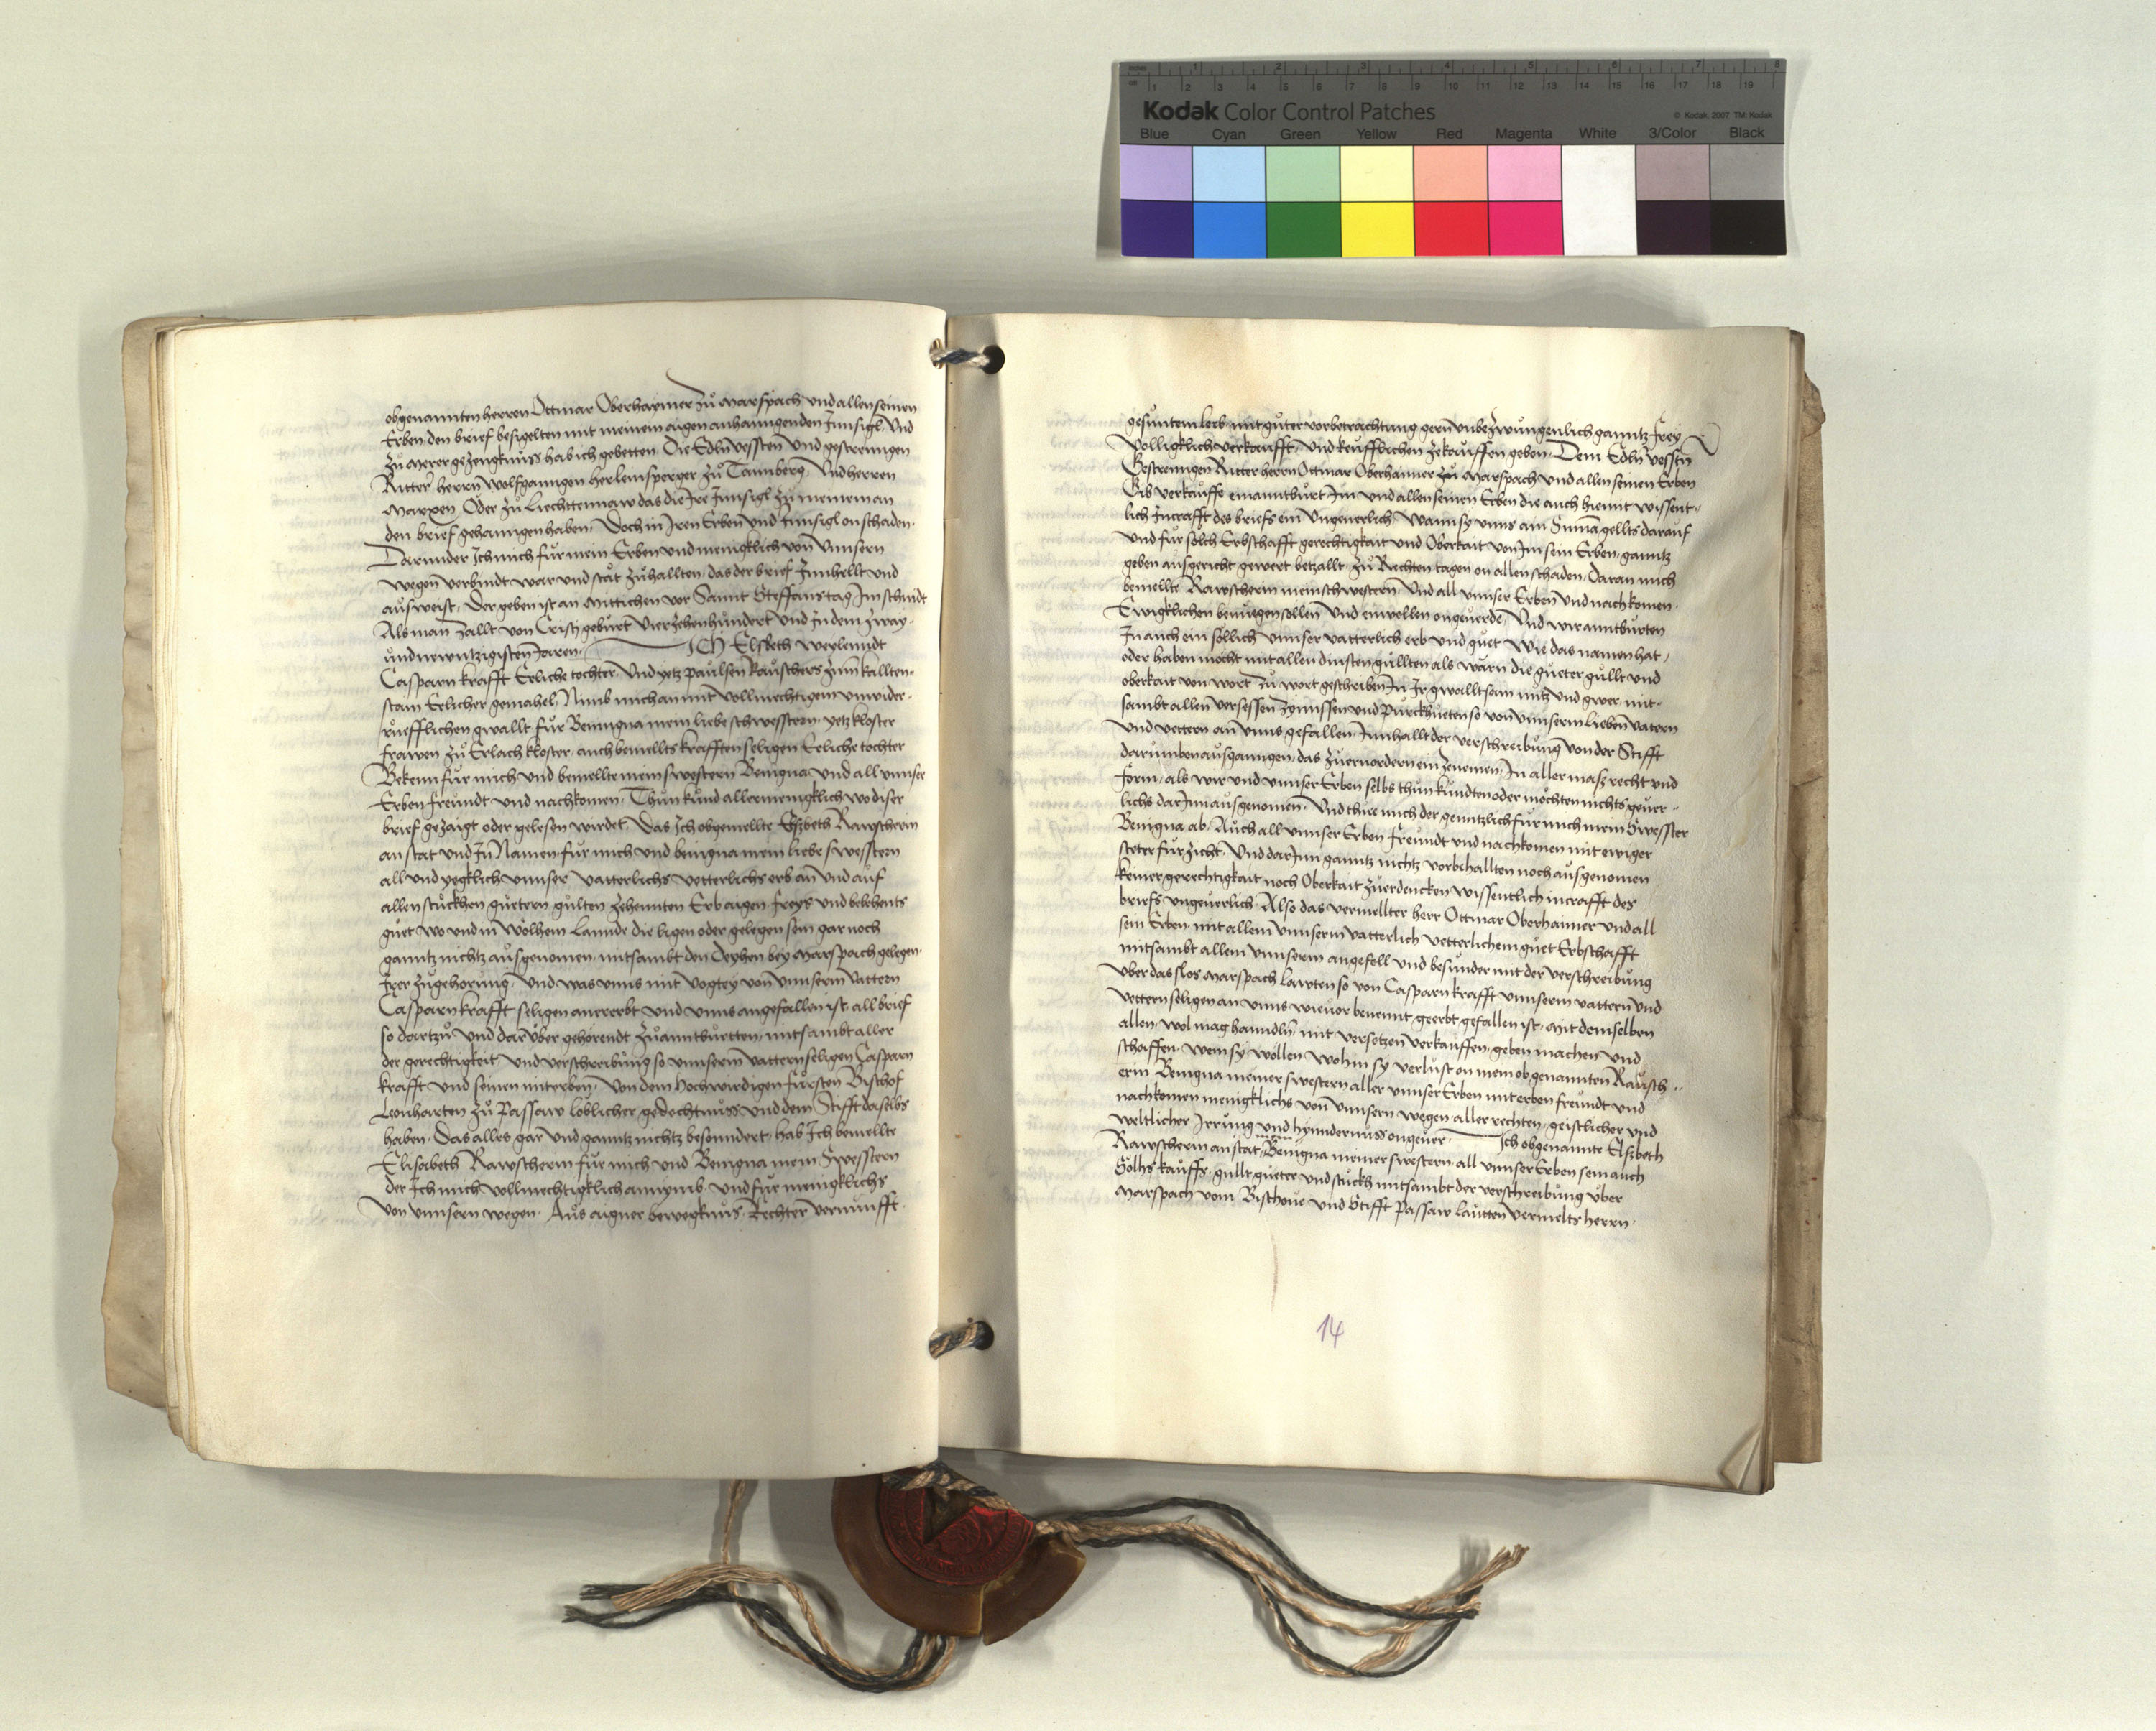 Kodak Color Control Patches
© Kodak, 2007 TM: Kodak
Blue Cyan Green Yellow Red Magenta White 3/Color Black
obgenannten herren Ottmar Oberhaymer zů Marspach und allen seinen
Erben den brief besigelten mit meinem aigen anhanngenden Innsigl. Und
zů merer gezeugknůss hab ich gebetten. Die Edln vessten und gestrenngen
Ritter herrn Wolfganngen herleinsperger zů Tannberg. Und herren
Marxen Oder zů Liechttennaw das die Ire Innsigl zů meinem an
den brief gehanngen haben. Doch in Iren Erben und Innsigl on schaden.
Darunder Ich mich fůr mein Erben und menigklich von unnsern
wegen verbindt war und stät zůhallten, das der brief Innhellt und
ausweist. Der geben ist an Mittichen vor Sannt Steffans tag Im schnidt
Als man zallt von Cristi gebůrt vierzehenhůndert und In dem zway-
und newntzigisten Jaren. ICH Elsbeth weylenndt
Casparn krafft Erliche tochter. Und yetz Paulsen Rauschers zum kallten-
stain Erlicher gemahel. Nimb mich an mit vollmechtigem unwider-
růefflichen gwallt fůr Benigna mein liebe schwesstern. yetz kloster
frawen zů Erlach kloster. auch bemellts krafften seligen Eeliche tochter
Bekenn fůr mich und bemellte mein swestern Benigna und all unnser
Erben freundt und nachkomen. Thůn kund allermenigklich wo diser
brief gezaigt oder gelesen wirdet. Das Ich obgemellte Elsbeth Rawscherin
an stat und In Namen fůr mich und benigna mein liebe swesstern
all und yegklich unnser vatterlichs vetterlichs erb an und auf
allen stuckhen gůetern gůlten zehennten Erb aigen freys und belehents
gůet wo und in wölhem Lannde die ligen oder gelegen sein gar noch
ganntz nichtz ausgenomen. mitsambt den Oeyhen bey Marspach gelegen.
Irer zůgehorůng. Und was unns mit vogtey von unnserm Vattern
Casparn krafft seligen anererbt und unns angefallen ist. all brief
so dartzů und darůber gehörendt zůanttbůrtten. mitsambt aller
der gerechtigkeit und verschreibůng so unnserm vattern seligen Casparn
krafft und seinen miterben. Von dem hochwirdigen fůrsten Bischof
Leonharten zů Passaw löblicher gedechtnůss und dem Stifft daselbs
haben. Das alles gar und ganntz nichtz besonndert. hab Ich bemellte
Elisabeth Rawscherin fůr mich und Benigna mein Swesstern
der Ich mich vollmechtigklich annymb. und fůr menigklichs
von unnsern wegen. Aůs aigner bewegknůs. Rechter vernůnfft.
gesůntem leib. mit gůter vorbetrachtung gern unbezwůngenlich ganntz frey
Volligklich verkaufft. Und keůfflichen zekauffen geben. Dem Edln vesstn
Gestrenngen Ritter herrn Ottmar Oberhaimer zů Marspach und allen seinen Erben
Gib verkauffe einanttbůrt Im und allen seinen Erben die auch hiemit wissent-
lich Incrafft des briefs ein Ungeuerlich. Wann sy unns ain Suma gellts darauf
und fůr solch Erbschafft gerechtigkait und Oberkait von Im sein Erben. ganntz
geben ausgericht gewert betzallt. zů Rechten tagen on allen schaden. Daran mich
bemellte Rawscherin mein schwestern. Und all unnser Erben und nachkomen.
Ewigklichen benuegen sollen und ein wollen ongeuerde. Und wir anntbůrten
In auch ein söllich unnser vatterlich erb und gůet. Wie das namen hat.
oder haben möcht mit allen dinsten gůllten als wärn die gůeter gůllt und
oberkait von wort zů wort geschriben In Ir gwalltsam nůtz und gwer. mit-
sambt allen versessen zynnssen und Pürckhůeten so von unnserm lieben vatern
und vettern an unns gefallen. Innhallt der verschreibůng von der Stifft
darumben ausganngen. das zůeruordern ein zenemen. In aller mass recht und
form. als wir und unnser Erben selbs thůn kůndten oder möchten nichts geuer-
lichs dar Inn ausgenomen. Und thue mich der genntzlich fůr mich mein Swesster
Benigna ab. Auch all unnser Erben freundt und nachkomen mit ewiger
stetter fůrzicht. Und darInn ganntz nichtz vorbehallten noch ausgenomen
kainer gerechtigkait noch Oberkait zůerdencken wissentlich incrafft des
briefs ungeuerlich. Also das vermellter herr Ottmar Oberhaimer und all
sein Erben. mit allem unnserm vatterlich vetterlichem gůet Erbschafft
mitsambt allem unnserm angefell und besůnder mit der verschreibůng
ůber das slos Marspach lawten so von Casparn krafft unnserm vattern und
vettern seligen an unns wie vor benennt. geerbt gefallen ist. mit demselben
allen. wol mag hanndln. mit versetzen verkauffen. geben machen und
schaffen. wem sy wöllen wohin sy verlůst on mein obgenannten Rausch-
erin Benigna meiner swestern aller unnser Erben miterben freundt und
nachkomen menigklichs von unnsern wegen. aller rechten. geistlicher und
weltlicher Irrung und hynndernůss ongeuer. Ich obgenannte Elsbeth
Rawscherin an stat Benigna meiner swestern. all unnser Erben sein auch
Solhs kauffs. gůllt gůeter und stůcks mitsambt der verschreibůng ůber
Marspach vom Bischoue und Stifft Passaw lautten vermelts herrn.
14